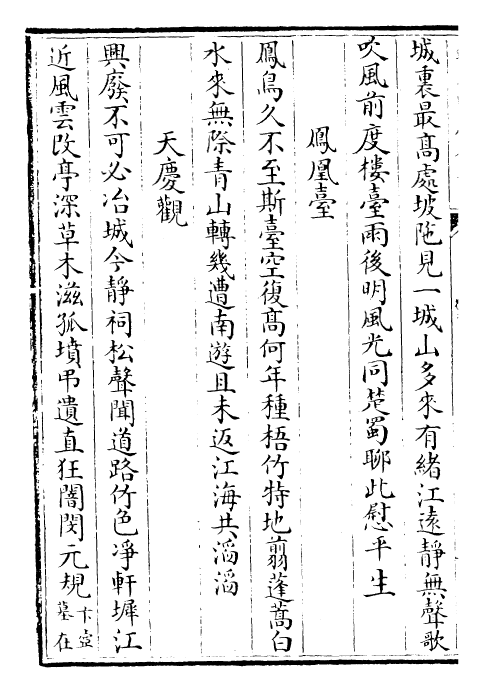 城裏最高處坡陁見一城山多來有緒江遠靜無聲歌
吹風前度樓臺雨後明風光同楚蜀聊此慰平生
鳳凰臺
鳳鳥久不至斯臺空復高何年種梧竹特地翦蓬蒿白
水來無際青山轉幾遭南遊且未返江海共滔滔
天慶觀
興廢不可必冶城今靜祠松聲聞道路竹色凈軒墀江
近風雲改亭深草木滋孤墳弔遺直狂闇閔元規卞壼
墓在